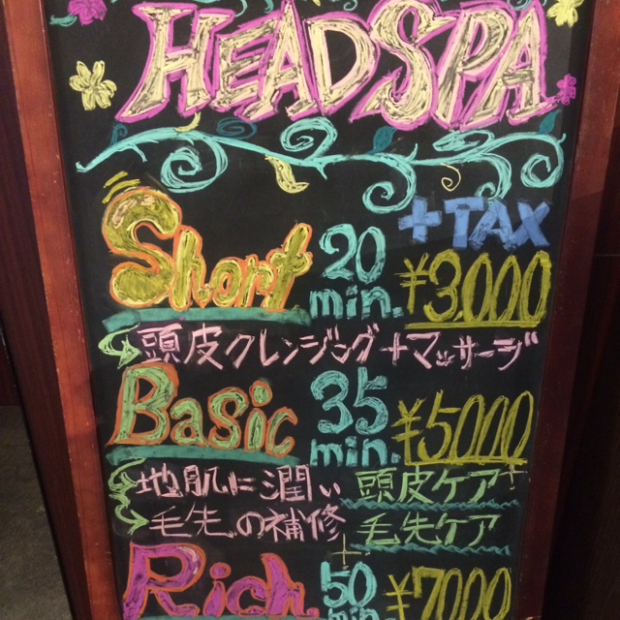 HEADSPA
+TAX
Short 20 min. ¥3.000
頭皮クレンジング+マッサージ
Basic 35 min. ¥5000
地肌に潤い 頭皮ケア+
毛先の補修 毛先ケア
+
Rich 50 min. ¥7000